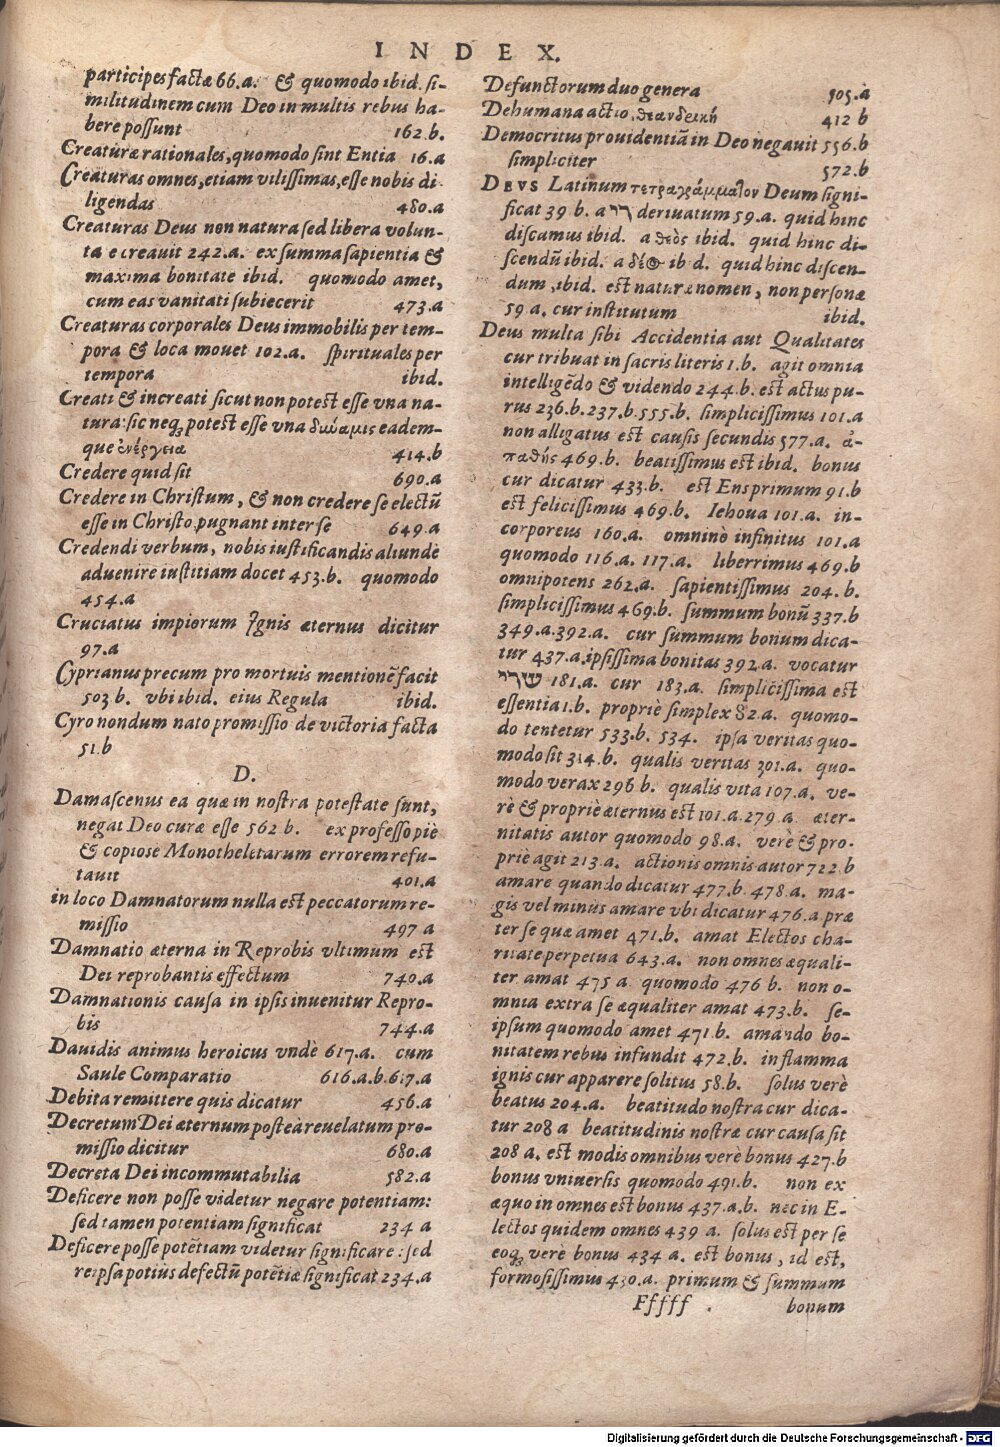 INDEX.
participes factæ 66.a. & quomodo ibid. si-
militudinem cum Deo in multis rebus ha-
bere possunt 162.b.
Creaturæ rationales, quomodo sint Entia 16.a
Creaturas omnes, etiam vilissimas, esse nobis di
ligendas 480.a
Creaturas Deus non natura sed libera volun-
tate creauit 242.a. ex summa sapientia &
maxima bonitate ibid. quomodo amet,
cum eas vanitati subiecerit 473.a
Creaturas corporales Deus immobilis per tem-
pora & loca mouet 102.a. spirituales per
tempora ibid.
Creati & increati sicut non potest esse vna na-
tura: sic neq; potest esse vna δυνάμις eadem-
que ἐνέργεια 414.b
Credere quid sit 690.a
Credere in Christum, & non credere se electũ
esse in Christo, pugnant inter se 649.a
Credendi verbum, nobis iustificandis aliunde
aduenire iustitiam docet 453.b. quomodo
454.a
Cruciatus impiorum Ignis æternus dicitur
97.a
Cyprianus precum pro mortuis mentionẽ facit
503 b. vbi ibid. eius Regula ibid.
Cyro nondum nato promissio de victoria facta
51.b
D.
Damascenus ea quæ in nostra potestate sunt,
negat Deo curæ esse 562 b. ex professo piè
& copiose Monotheletarum errorem refu-
tauit 401.a
in loco Damnatorum nulla est peccatorum re-
missio 497 a
Damnatio æterna in Reprobis vltimum est
Dei reprobantis effectum 740.a
Damnationis causa in ipsis inuenitur Repro-
bis 744.a
Dauidis animus heroicus vndè 617.a. cum
Saule Comparatio 616.a.b.617.a
Debita remittere quis dicatur 456.a
Decretum Dei æternum posteà reuelatum pro-
missio dicitur 680.a
Decreta Dei incommutabilia 582.a
Deficere non posse videtur negare potentiam:
sed tamen potentiam significat 234 a
Deficere posse potẽtiam videtur significare: sed
reipsa potius defectũ potẽtiæ significat 234.a
Defunctorum duo genera 505.a
Dehumana actio, θεανδρική 412 b
Democritus prouidentiã in Deo negauit 556.b
simpliciter 572.b
DEVS Latinum τετραγράμματον Deum signi-
ficat 39 b. a דיי deriuatum 59.a. quid hinc
discamus ibid. a θεὸς ibid. quid hinc di-
scendũ ibid. a δέος ib d. quid hinc discen-
dum, ibid. est naturæ nomen, non personæ
59 a. cur institutum ibid.
Deus multa sibi Accidentia aut Qualitates
cur tribuat in sacris literis 1.b. agit omnia
intelligẽdo & videndo 244.b. est actus pu-
rus 236.b.237.b.555.b. simplicissimus 101.a
non alligatus est causis secundis 577.a. ἀ-
παθής 469.b. beatissimus est ibid. bonus
cur dicatur 433.b. est Ens primum 91.b
est felicissimus 469.b. Iehoua 101.a. in-
corporeus 160.a. omninò infinitus 101.a
quomodo 116.a. 117.a. liberrimus 469.b
omnipotens 262.a. sapientissimus 204. b.
simplicissimus 469.b. summum bonũ 337.b
349.a.392.a. cur summum bonum dica-
tur 437.a. ipsissima bonitas 392.a. vocatur
שדי 181.a. cur 183.a. simplicissima est
essentia 1.b. propriè simplex 82.a. quomo-
do tentetur 533.b. 534. ipsa veritas quo-
modo sit 314.b. qualis veritas 301.a. quo-
modo verax 296 b. qualis vita 107.a. ve-
rè & propriè æternus est 101.a.279.a. æter-
nitatis autor quomodo 98.a. verè & pro-
priè agit 213.a. actionis omnis autor 722.b
amare quando dicatur 477.b. 478.a. ma-
gis vel minùs amare vbi dicatur 476.a præ
ter se quæ amet 471.b. amat Electos cha-
ritate perpetua 643.a. non omnes æquali-
ter amat 475 a. quomodo 476 b. non o-
mnia extra se æqualiter amat 473.b. se-
ipsum quomodo amet 471.b. amando bo-
nitatem rebus infundit 472.b. in flamma
ignis cur apparere solitus 58.b. solus verè
beatus 204.a. beatitudo nostra cur dica-
tur 208 a. beatitudinis nostræ cur causa sit
208 a. est modis omnibus verè bonus 427.b
bonus vniuersis quomodo 491.b. non ex
æquo in omnes est bonus 437.a.b. nec in E-
lectos quidem omnes 439 a. solus est per se
eoq; verè bonus 434 a. est bonus, id est,
formosissimus 430.a. primum & summum
Fffff bonum
Digitalisierung gefördert durch die Deutsche Forschungsgemeinschaft - DFG